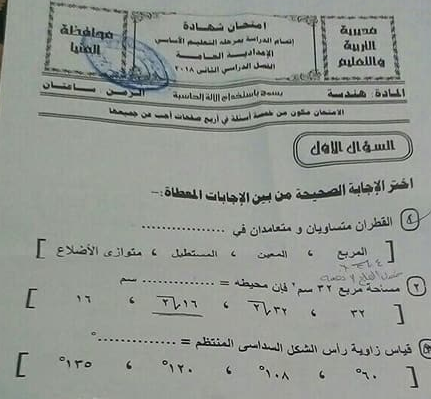 مديرية
التربية
والتعليم
امتحان شهادة
إتمام الدراسة بمرحلة التعليم الأساسى
الإعدادية العامة
الفصل الدراسي الثانى ٢٠١٨
محافظة
المنيا
المادة: هندسة يسمح باستخدام الآلة الحاسبة الزمن ساعتان
الامتحان مكون من خمسة أسئلة في أربع صفحات أجب عن جميعها
السؤال الأول
اختر الإجابة الصحيحة من بين الإجابات المعطاة:-
القطران متساويان و متعامدان في ................
[ المربع ، المعين ، المستطيل ، متوازى الأضلاع ]
٢ مساحة مربع ٣٢ سم٢ فإن محيطه = ................ سم
[ ٣٢ ، ٣٢√٢ ، ١٦√٢ ، ١٦ ]
قياس زاوية رأس الشكل السداسى المنتظم = ................°
[ ٦٠° ، ١٠٨° ، ١٢٠° ، ١٣٥° ]